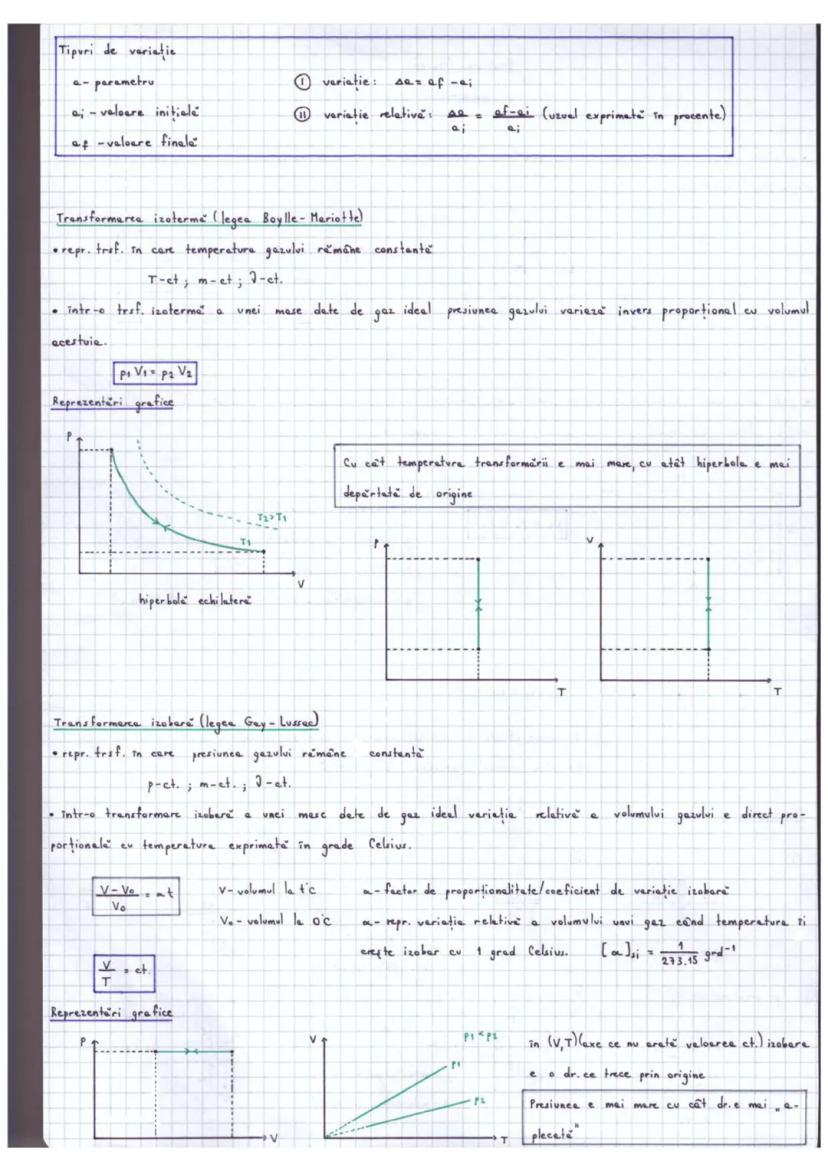 Tipuri de variație
a - parametru
Ⓘ variație: Δa = af - ai
ai - valoare inițială
Ⓘ Ⓘ variație relativă: Δa/ai = af-ai/ai (uzual exprimată în procente)
af - valoare finală
Transformarea izotermă (legea Boylle-Mariotte)
• repr. trsf. în care temperatura gazului rămâne constantă
T-ct; m-ct; ν-ct.
• într-o trsf. izotermă a unei mase date de gaz ideal presiunea gazului variază invers proporțional cu volumul
acestuia.
p1 V1 = p2 V2
Reprezentări grafice
P
T2>T1
T1
V
hiperbolă echilateră
Cu cât temperatura transformării e mai mare, cu atât hiperbola e mai
depărtată de origine
P
T
V
T
Transformarea izobară (legea Gay-Lussac)
• repr. trsf. în care presiunea gazului rămâne constantă
p-ct. ; m-ct. ; ν-ct.
• într-o transformare izobară a unei mase date de gaz ideal variația relativă a volumului gazului e direct pro-
porțională cu temperatura exprimată în grade Celsius.
V-V0/V0 = αt
V - volumul la t°C
α - factor de proporționalitate/coeficient de variație izobară
V0 - volumul la 0°C
α - repr. variația relativă a volumului unui gaz când temperatura îi
crește izobar cu 1 grad Celsius. [α]si = 1/273.15 grd⁻¹
V/T = ct.
Reprezentări grafice
P
V
V
p1<p2
p1
p2
T
în (V,T)(axe ce nu arată valoarea ct.) izobara
e o dr. ce trece prin origine
Presiunea e mai mare cu cât dr. e mai „a-
plecată"